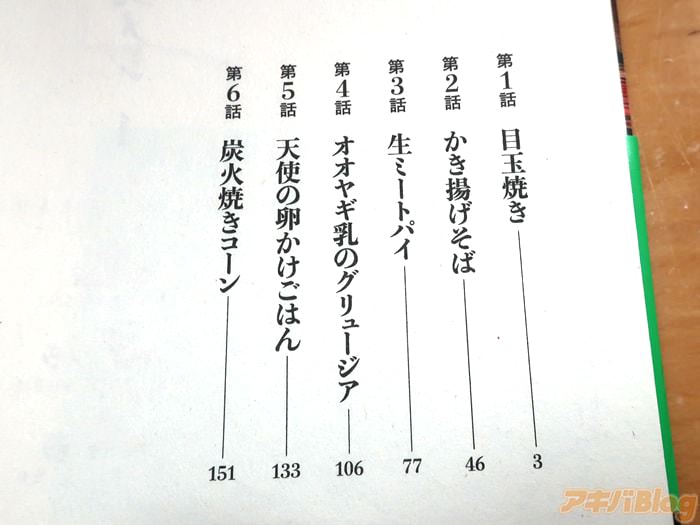 第1話 目玉焼き 3
第2話 かき揚げそば 46
第3話 生ミートパイ 77
第4話 オオヤギ乳のグリュージア 106
第5話 天使の卵かけごはん 133
第6話 炭火焼きコーン 151
アキバBlog